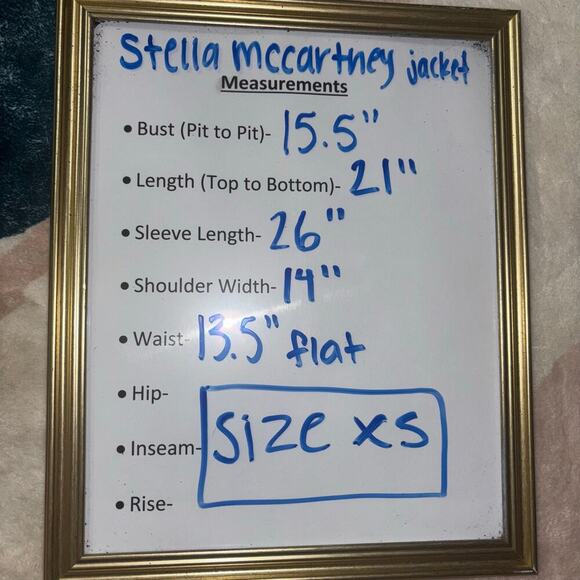 Stella mccartney jacket
Measurements
• Bust (Pit to Pit)- 15.5"
• Length (Top to Bottom)- 21"
• Sleeve Length- 26"
• Shoulder Width- 14"
• Waist- 13.5" flat
• Hip-
• Inseam- Size xs
• Rise-